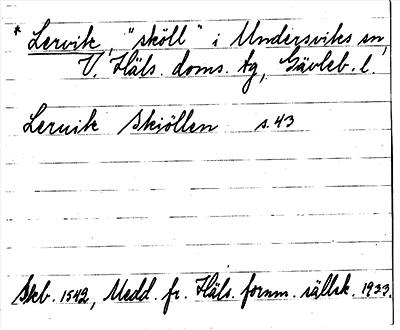 * Lervik, "sköll" i Undersviks sn,
V. Häls. doms. tg, Gävleb. l.
Leruik Skiöllen s. 43
Skb. 1542, Medd. fr. Häls. fornm. sällsk. 1933.